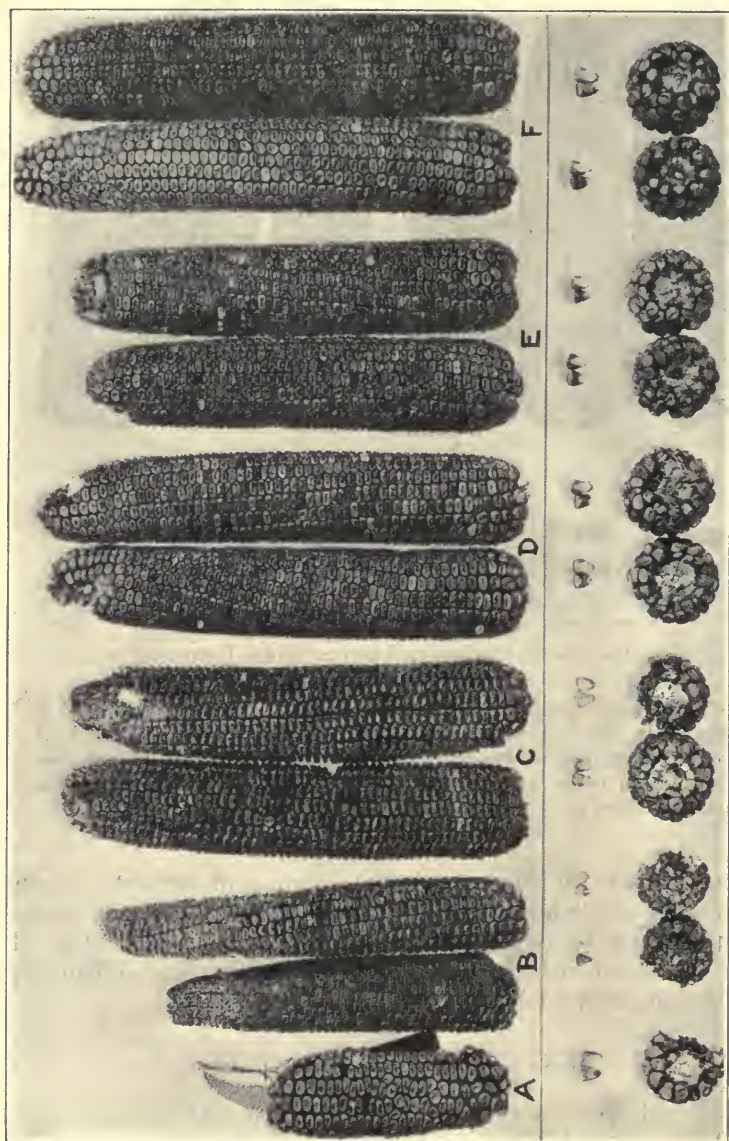 A B C D E F